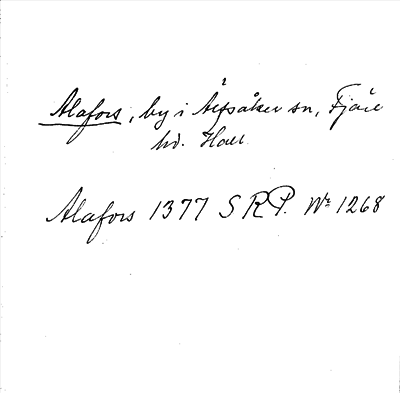 Alafors, by i Älfsåker sn, Fjäre
hd. Hall.
Alafors 1377 SRP. Nr 1268